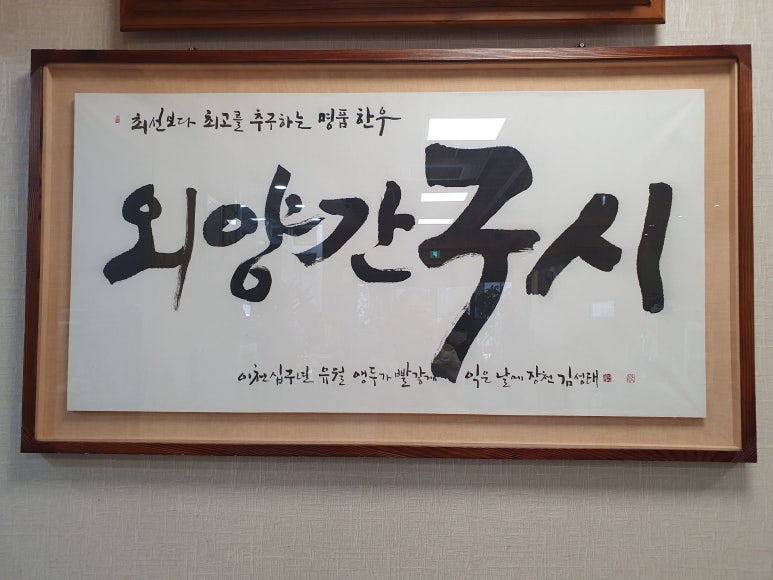 최선보다 최고를 추구하는 명품 한우
외양간구시
이천십구년 유월 앵두가 빨갛게 익은 날에 장천 김성태